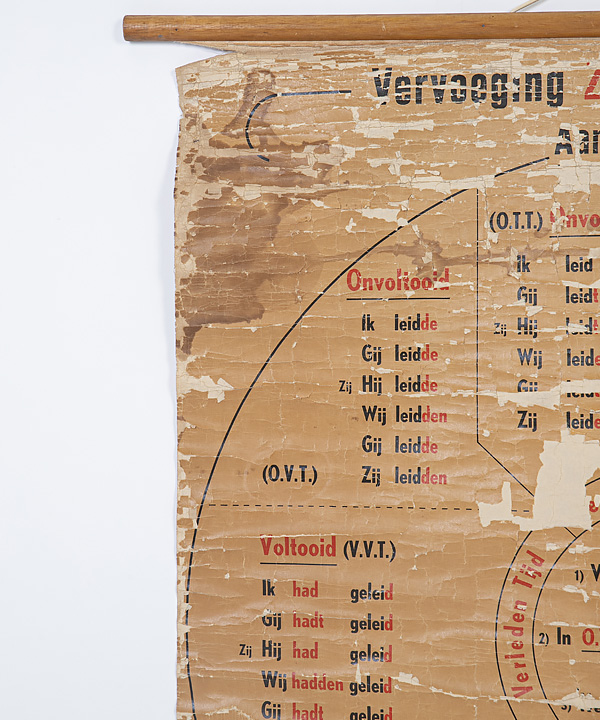 Vervoeging
(O.T.T.)
Ik leid
Gij leidt
Zij Hij leidt
Wij leide
Gij leid
Zij leide
Onvoltooid
Ik leidde
Gij leidde
Zij Hij leidde
Wij leidden
Gij leidde
Zij leidden
(O.V.T.)
Voltooid (V.V.T.)
Ik had geleid
Gij hadt geleid
Zij Hij had geleid
Wij hadden geleid
Gij hadt geleid
Verleden Tijd
1)
2) In O.
3)